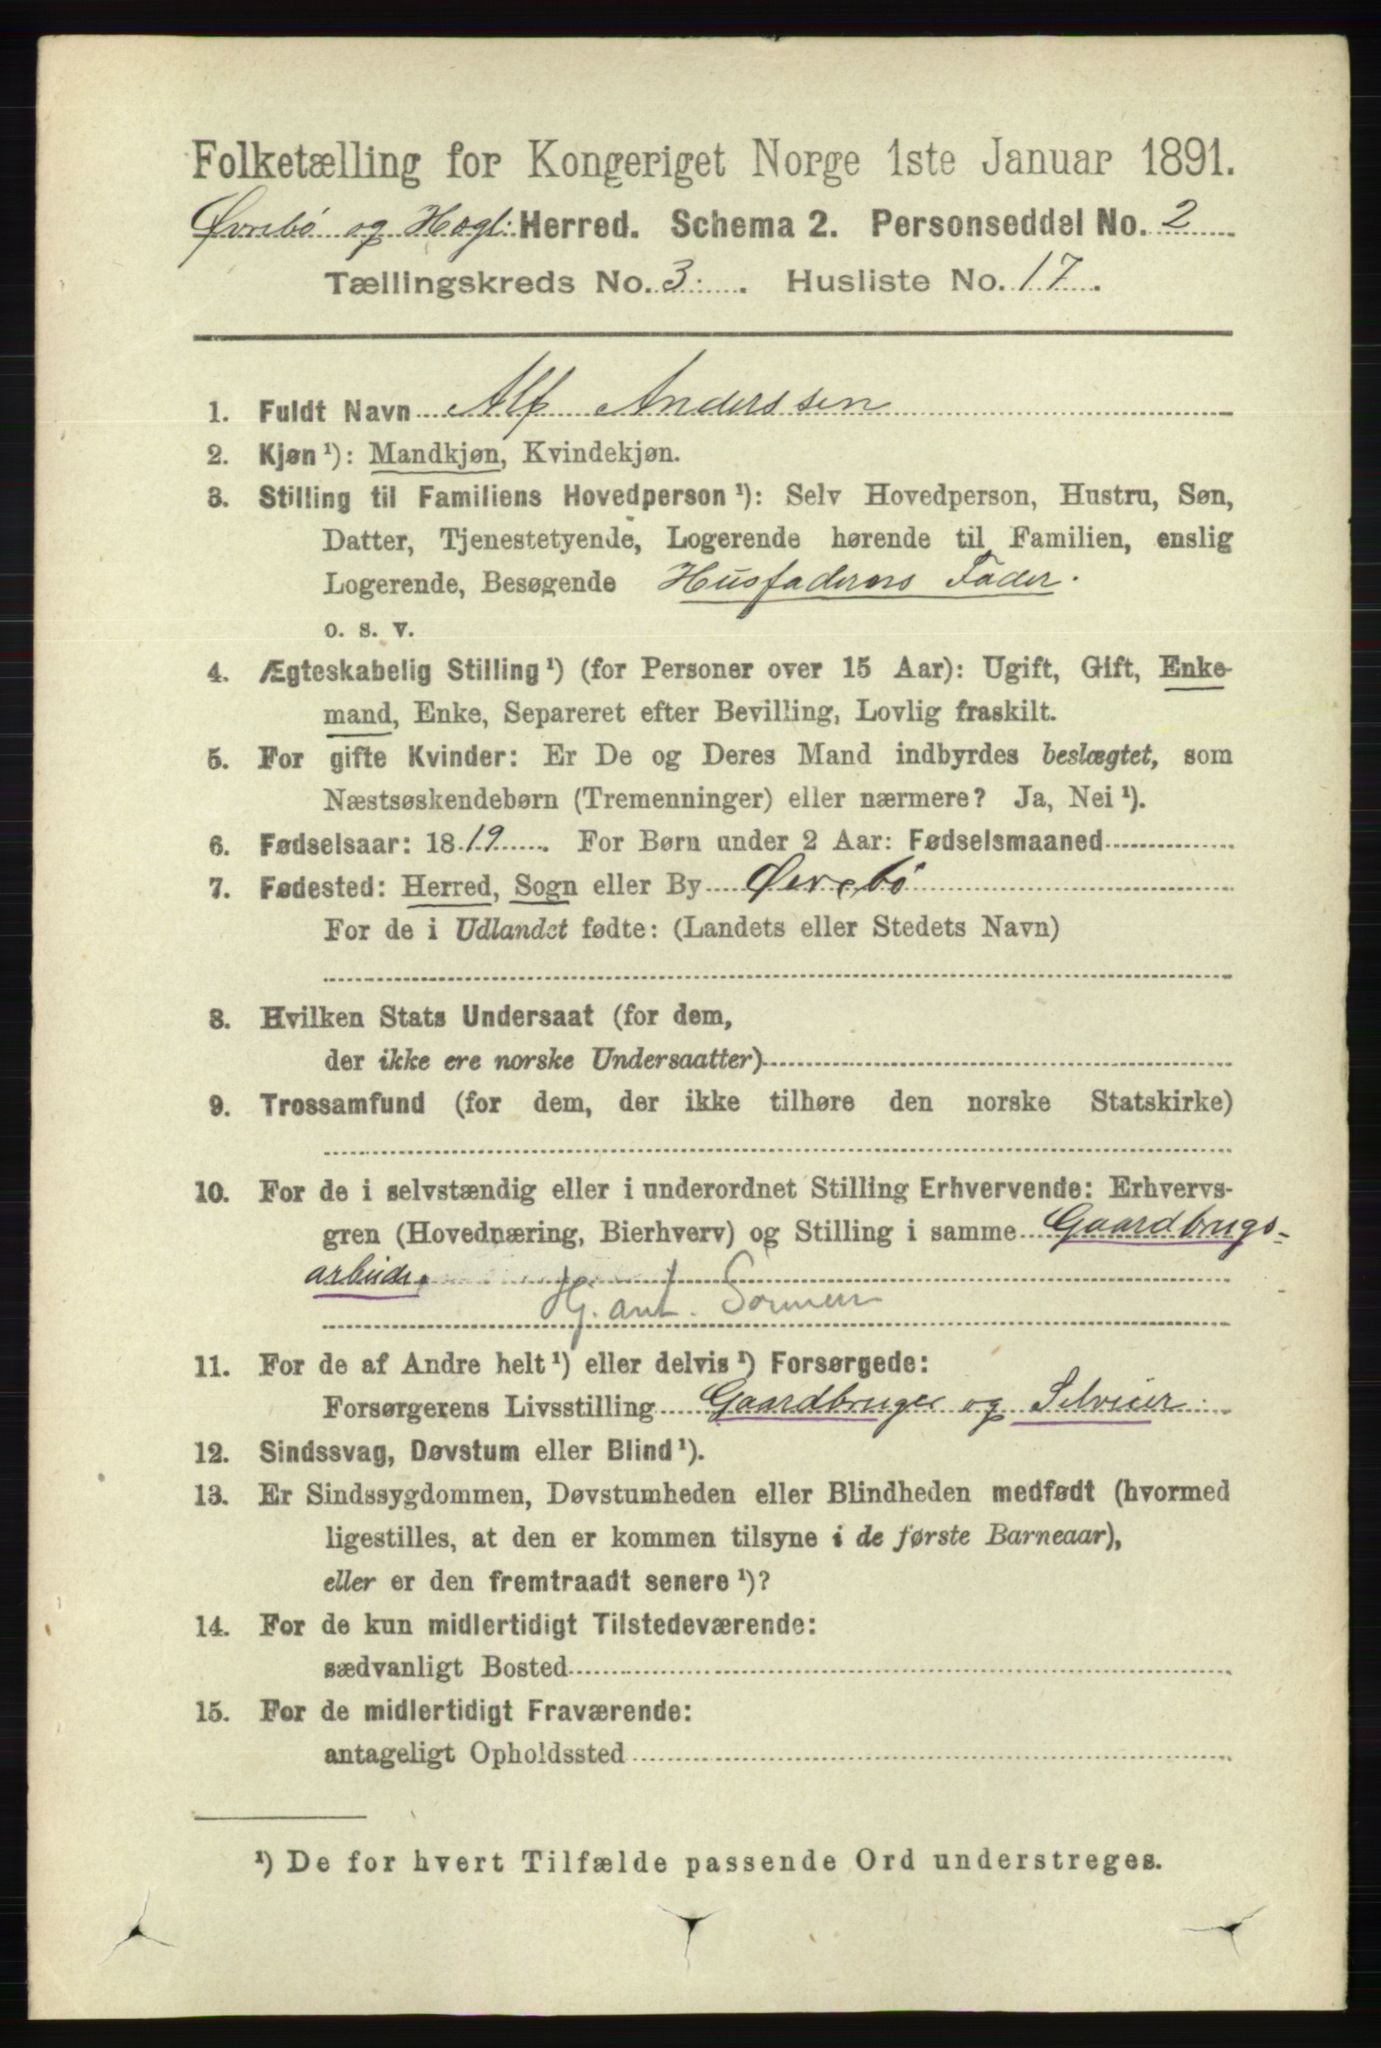 Folketælling for Kongeriget Norge 1ste Januar 1891.
Øvrebö og Hægl: Herred. Schema 2. Personseddel No. 2
Tællingskreds No. 3. Husliste No. 17.
1. Fuldt Navn Alf Anderssen
2. Kjøn¹): Mandkjøn, Kvindekjøn.
3. Stilling til Familiens Hovedperson¹): Selv Hovedperson, Hustru, Søn,
Datter, Tjenestetyende, Logerende hørende til Familien, enslig
Logerende, Besøgende Husfaderens Fader.
o. s. v.
4. Ægteskabelig Stilling¹) (for Personer over 15 Aar): Ugift, Gift, Enke-
mand, Enke, Separeret efter Bevilling, Lovlig fraskilt.
5. For gifte Kvinder: Er De og Deres Mand indbyrdes beslægtet, som
Næstsøskendebørn (Tremenninger) eller nærmere? Ja, Nei¹).
6. Fødselsaar: 1819. For Børn under 2 Aar: Fødselsmaaned
7. Fødested: Herred, Sogn eller By Øvrebö
For de i Udlandet fødte: (Landets eller Stedets Navn)
8. Hvilken Stats Undersaat (for dem,
der ikke ere norske Undersaatter)
9. Trossamfund (for dem, der ikke tilhøre den norske Statskirke)
10. For de i selvstændig eller i underordnet Stilling Erhvervende: Erhvervs-
gren (Hovednæring, Bierhverv) og Stilling i samme Gaardbrugs-
arbeide.
Hj. ant. Sønnen
11. For de af Andre helt¹) eller delvis¹) Forsørgede:
Forsørgerens Livsstilling Gaardbruger og Selveier.
12. Sindssvag, Døvstum eller Blind¹).
13. Er Sindssygdommen, Døvstumheden eller Blindheden medfødt (hvormed
ligestilles, at den er kommen tilsyne i de første Barneaar),
eller er den fremtraadt senere¹)?
14. For de kun midlertidigt Tilstedeværende:
sædvanligt Bosted
15. For de midlertidigt Fraværende:
antageligt Opholdssted
¹) De for hvert Tilfælde passende Ord understreges.